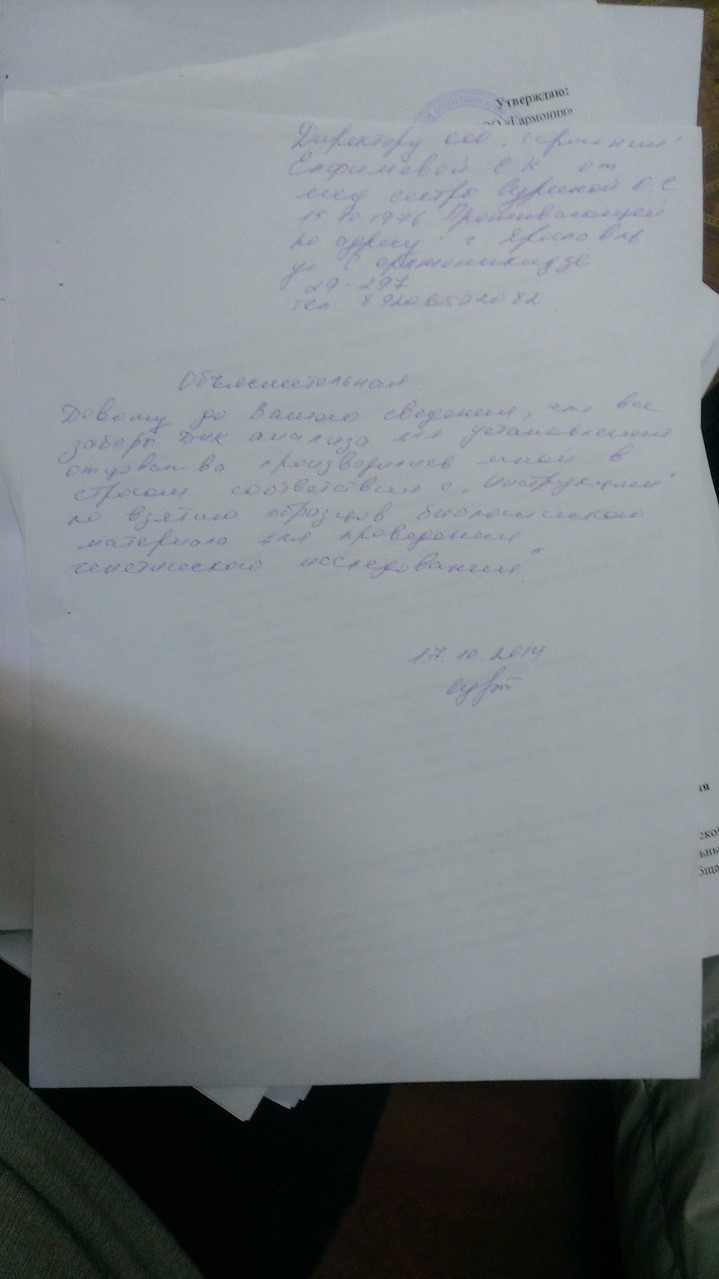 Утверждаю:
«Гармония»
Директору ооо „Гармония"
Епфимовой Е К от
мед сестры О.С
15 10 1976 Проживающей
по адресу г. Ярославль
ул С Орджоникидзе
29-297
тел 89206502082
Объяснительная
Довожу до Вашего сведения, что все
заборы ДНК анализа для установления
отцовства производились мной в
строгом соответствии с „Инструкцией
по взятию образцов биологического
материала для проведения
генетического исследования"
17.10.2014
ия
ской
ьны
бща